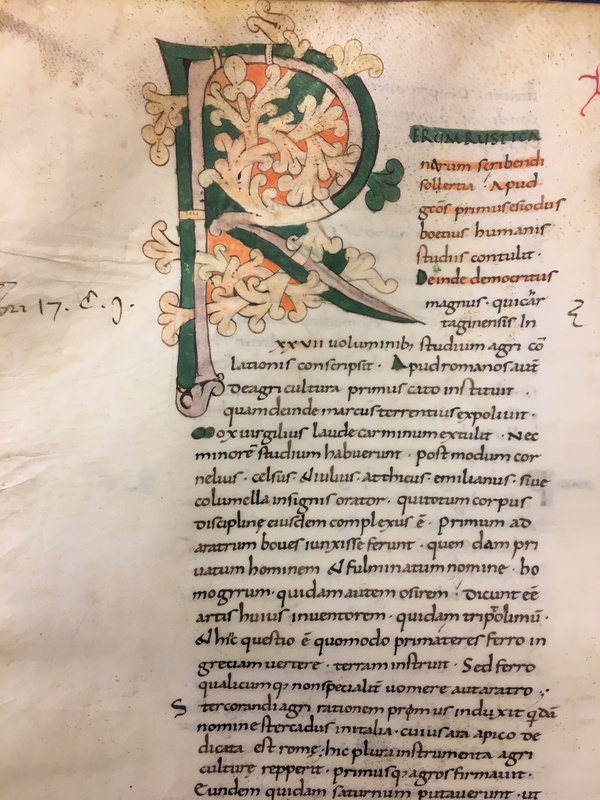 RERUM RUSTICA
narum scribendi
sollertia · Apud
grecos primus esiodus
boetius humanis
studiis contulit ·
Deinde democritus
magnus · quicar
taginensis In
xxvii voluminib; studium agri co
lationis conscripsit · Apud romanos aut
De agri cultura primus cato instituit ·
quam deinde marcus terrentius expoliuit ·
Mox uirgilius laude carminum extulit · Nec
minore studium habuerunt · post modum cor
nelius · celsus · & iulius · atthicus · emilianus · siue
columella insignis orator · qui totum corpus
discipline eiusdem complexus ē · Primum ad
aratrum boues iunxisse ferunt · quen dam pri
uatum hominem & fulminatum nomine · ho
mogrrum · quidam autem osirem · Dicunt eēē
artis huius inuentorem · quidam tripolimū ·
& hic questio ē quomodo primateres ferro in
greciam uertere · terram instruit · Sed ferro
qualicumq; non specialit uomere aut aratro
Stercorandi agri rationem primus induxit qdā
nomine stercadus in italia · cuius ara apico de
dicata est rome · hic plura instrumenta agri
culture repperit · primusq; agros firmauit ·
Eundem quidam saturnum putauerunt · ut
17. C. J.